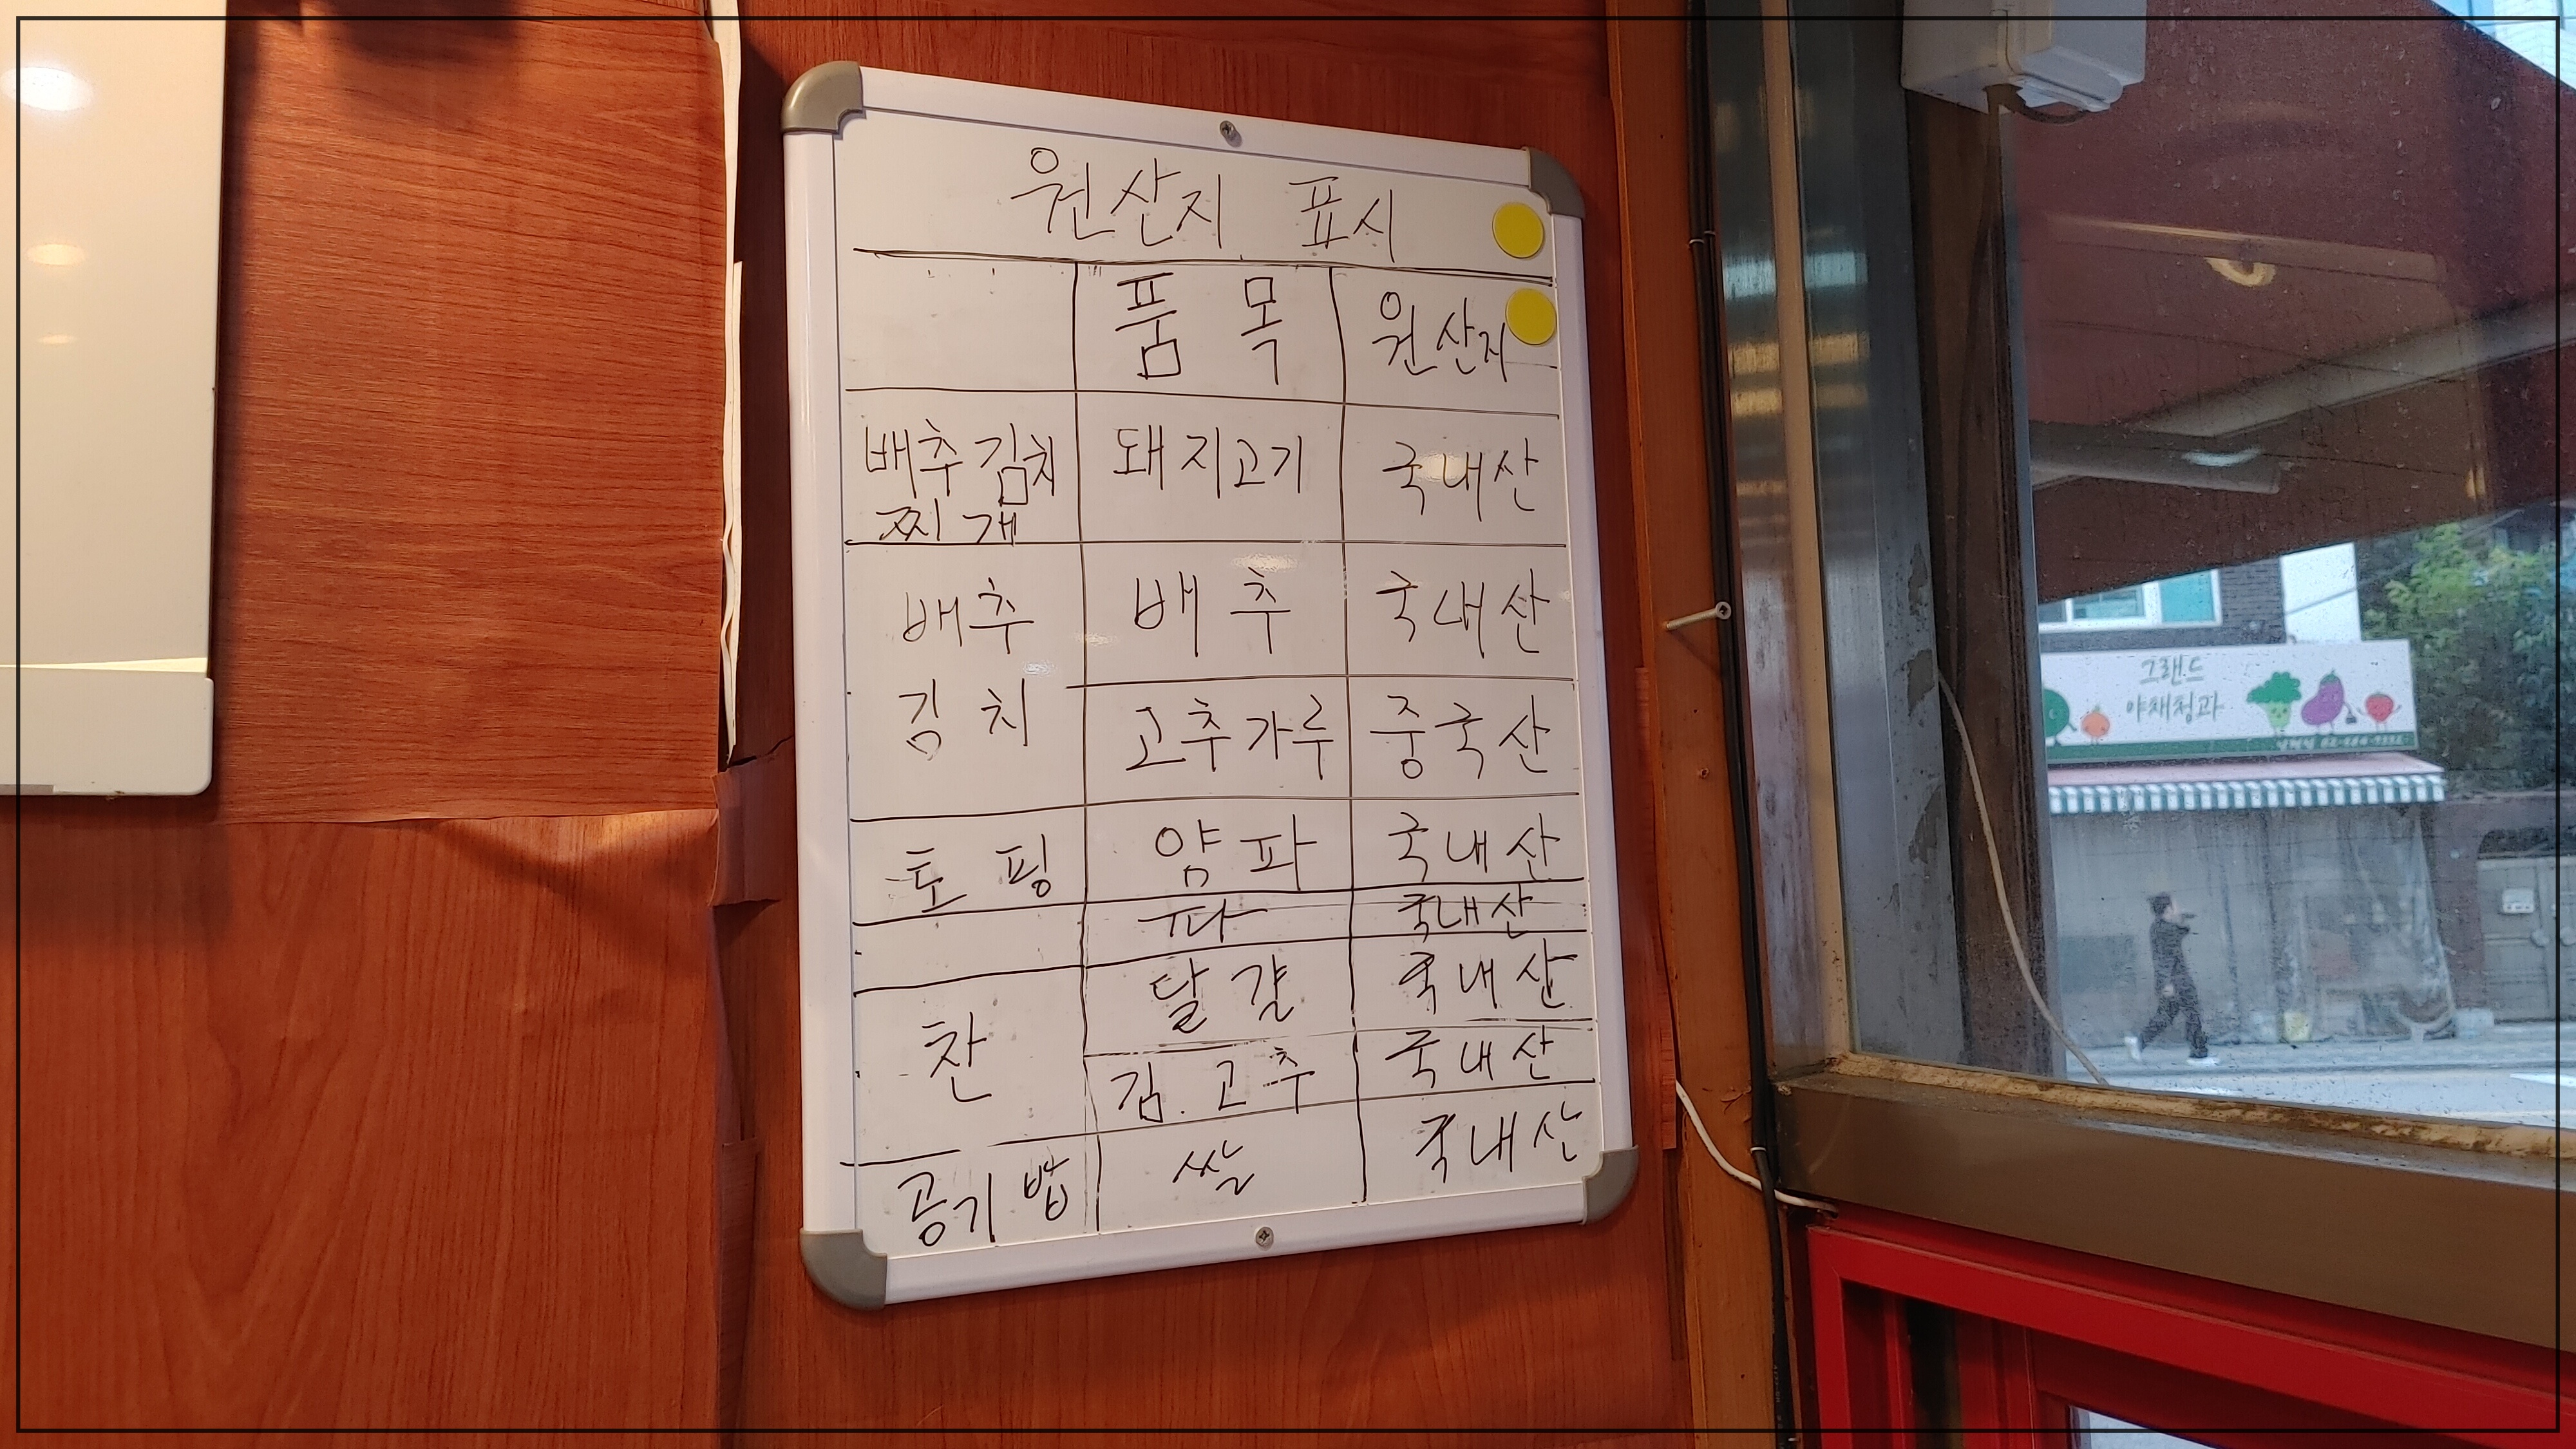 원산지 표시
품목 원산지
배추김치 돼지고기 국내산
찌개
배추 배추 국내산
김치 고추가루 중국산
토핑 양파 국내산
파 국내산
달걀 국내산
찬
김.고추 국내산
공기밥 쌀 국내산
그랜드
야채청과